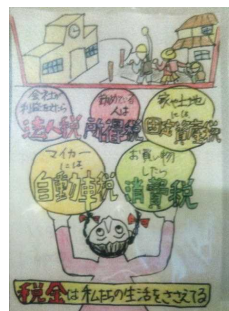 会社が
法人税
人は
所得税
家や土地
には
固定資産税
マイカー
には
自動車税
お買い物
したら
消費税
税金は私たちの生活をささえてる